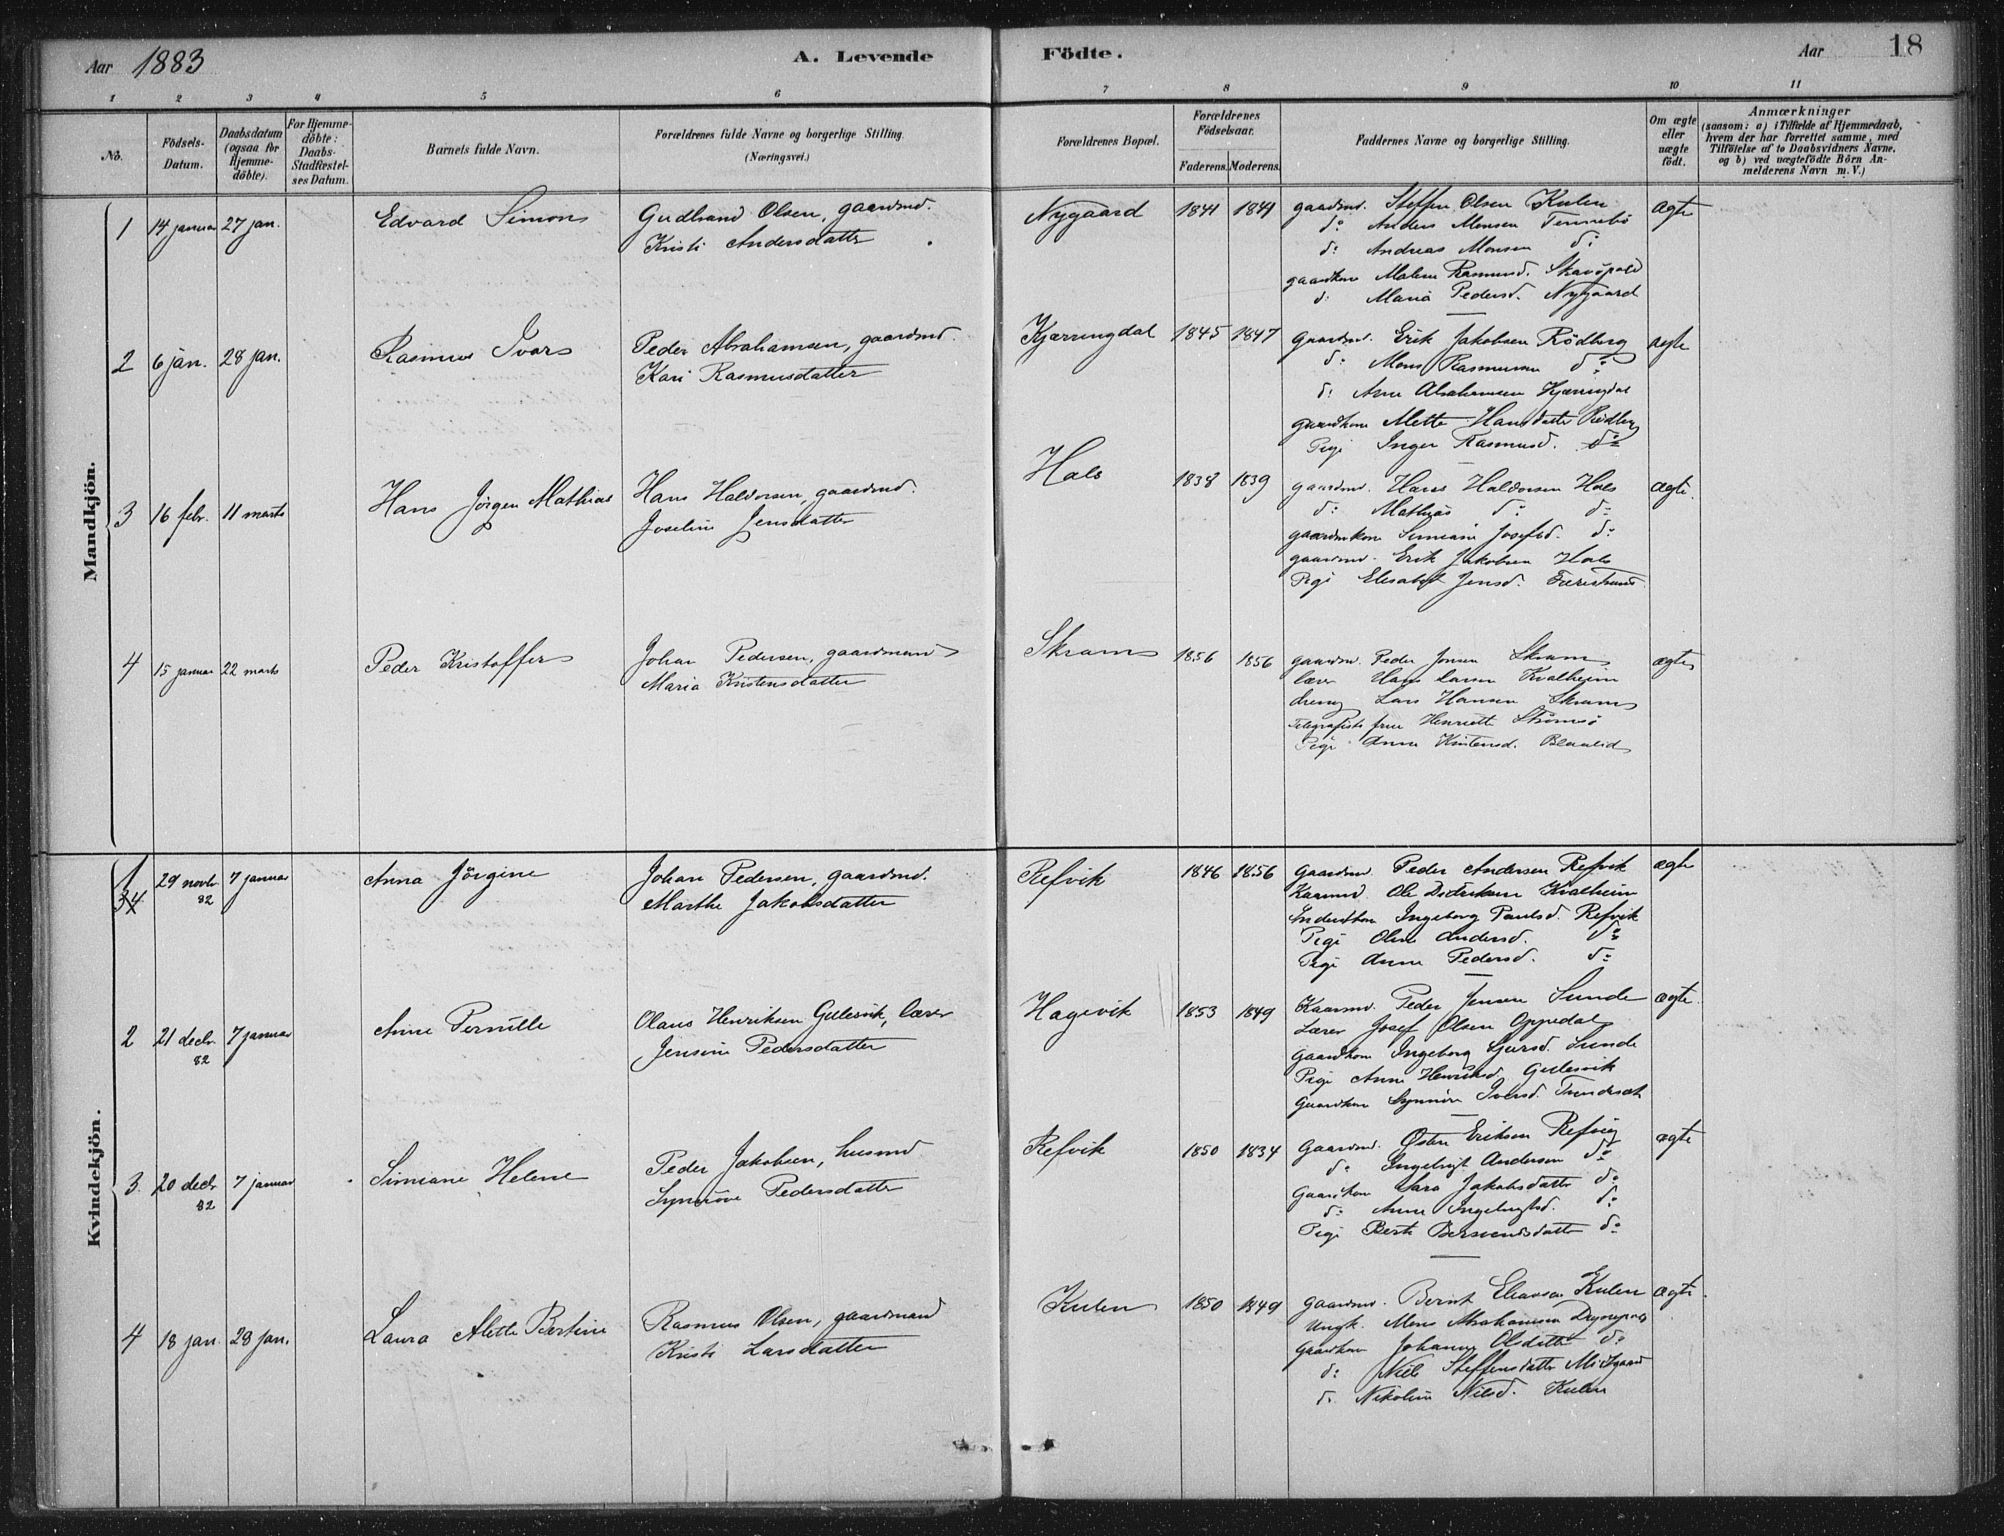 Aar 1883
A. Levende
Födte.
Aar
18
1 2 3 4 5 6 7 8 9 10 11
No.
Födsels-Datum.
Daabsdatum (ogsaa for Hjemme-döbte).
For Hjemme-döbte: Daabs-Stadfæstel-ses Datum.
Barnets fulde Navn.
Forældrenes fulde Navne og borgerlige Stilling. (Næringsvei.)
Forældrenes Bopæl.
Forældrenes Födselsaar.
Faderens. Moderens.
Faddernes Navne og borgerlige Stilling.
Om ægte eller uægte födt.
Anmærkninger
(saasom: a) i Tilfælde af Hjemmedaab, hvem der har forrettet samme, med Tilföielse af to Daabsvidners Navne, og b) ved uægtefödte Börn An-melderens Navn m. V.)
Mandkjön.
1 14 januar 27 jan. Edvard Simon
Gudbrand Olsen, gaardmd.
Kristi Andersdatter
Nygaard 1841 1841
gaardmd. Steffen Olsen Kulen
do Anders Monsen Tennebö
do Andreas Monsen do
gaardkone Malene Rasmusd.
do Maria Pedersd. Nygaard
ægte
2 6 jan. 28 jan. Rasmus Ivar
Peder Abrahamsen, gaardmd.
Kari Rasmusdatter
Kjærringdal 1845 1847
gaardmd. Erik Jakobsen Rödberg
do Mons Rasmusen do
do Arne Abrahamsen Kjærringdal
gaardkone Mette Hansdatter Rödberg
Pige Inger Rasmusd. do
ægte
3 16 febr. 11 marts Hans Jörgen Mathias
Hans Haldorsen, gaardmd.
Joseline Jensdatter
Hals 1838 1839
gaardmd. Hans Haldorsen Hals
do Mathias do do
gaardmkone Simiane Josefsd. do
gaardmd. Erik Jakobsen Hals
Pige Elisabet Jensd.
ægte.
4 15 januar 22 marts Peder Kristoffer
Johan Pedersen, gaardmand
Maria Kristensdatter
Skram 1856 1856
gaardmd. Peder Jonsen Skram
lærer Hans Larsen Kvalheim
dreng Lars Hansen Skram
Telegrafists frue Henriette Strömsö
Pige Anne Kristensd. Blaalid
ægte
Kvindekjön.
1 34 29 novbr. 82 7 januar Anna Jörgine
Johan Pedersen, gaardmd.
Marthe Jakobsdatter
Refvik 1846 1856
gaardmd. Peder Andersen Refvik
Kaarmd. Ole Didriksen Kvalheim
Inderstkone Ingeborg Paulsd. Refvik
Pige Oline Andersd. do
Pige Anne Pedersd. do
ægte
2 21 decbr. 82 7 januar Anne Pernille
Olaus Henriksen Gulesvik, lærer
Jensine Pedersdatter
Hagevik 1853 1849
Kaarmd. Peder Jensen Sunde
Lærer Josef Olsen Oppedal
gaardkone Ingeborg Sjursd. Sunde
Pige Anne Henriksd. Gulesvik
Gaardkone Synnöve Iversd.
ægte.
3. 20 decbr. 82 7 januar Simiane Helene
Peder Jakobsen, husmd
Synnöve Pedersdatter
Refvik 1850 1834
gaardmd. Östen Eriksen Refvig
do Ingebrigt Andersen do
gaardkone Sara Jakobsdatter do
do Anne Ingebrigtsd. do
Pige Berte Bersvendsdatter do
ægte
4 18 jan. 28 jan. Laura Alette Bertine
Rasmus Olsen, gaardmand
Kristi Larsdatter
Kulen 1850 1849
gaardmd. Bernt Eliassen Kulen
ungk. Mons Abrahamsen
gaardkone Johanne Olsdatter do
do Niels Steffensdatter Midtgaard
do Nikoline Nilsd. Kulen
ægte